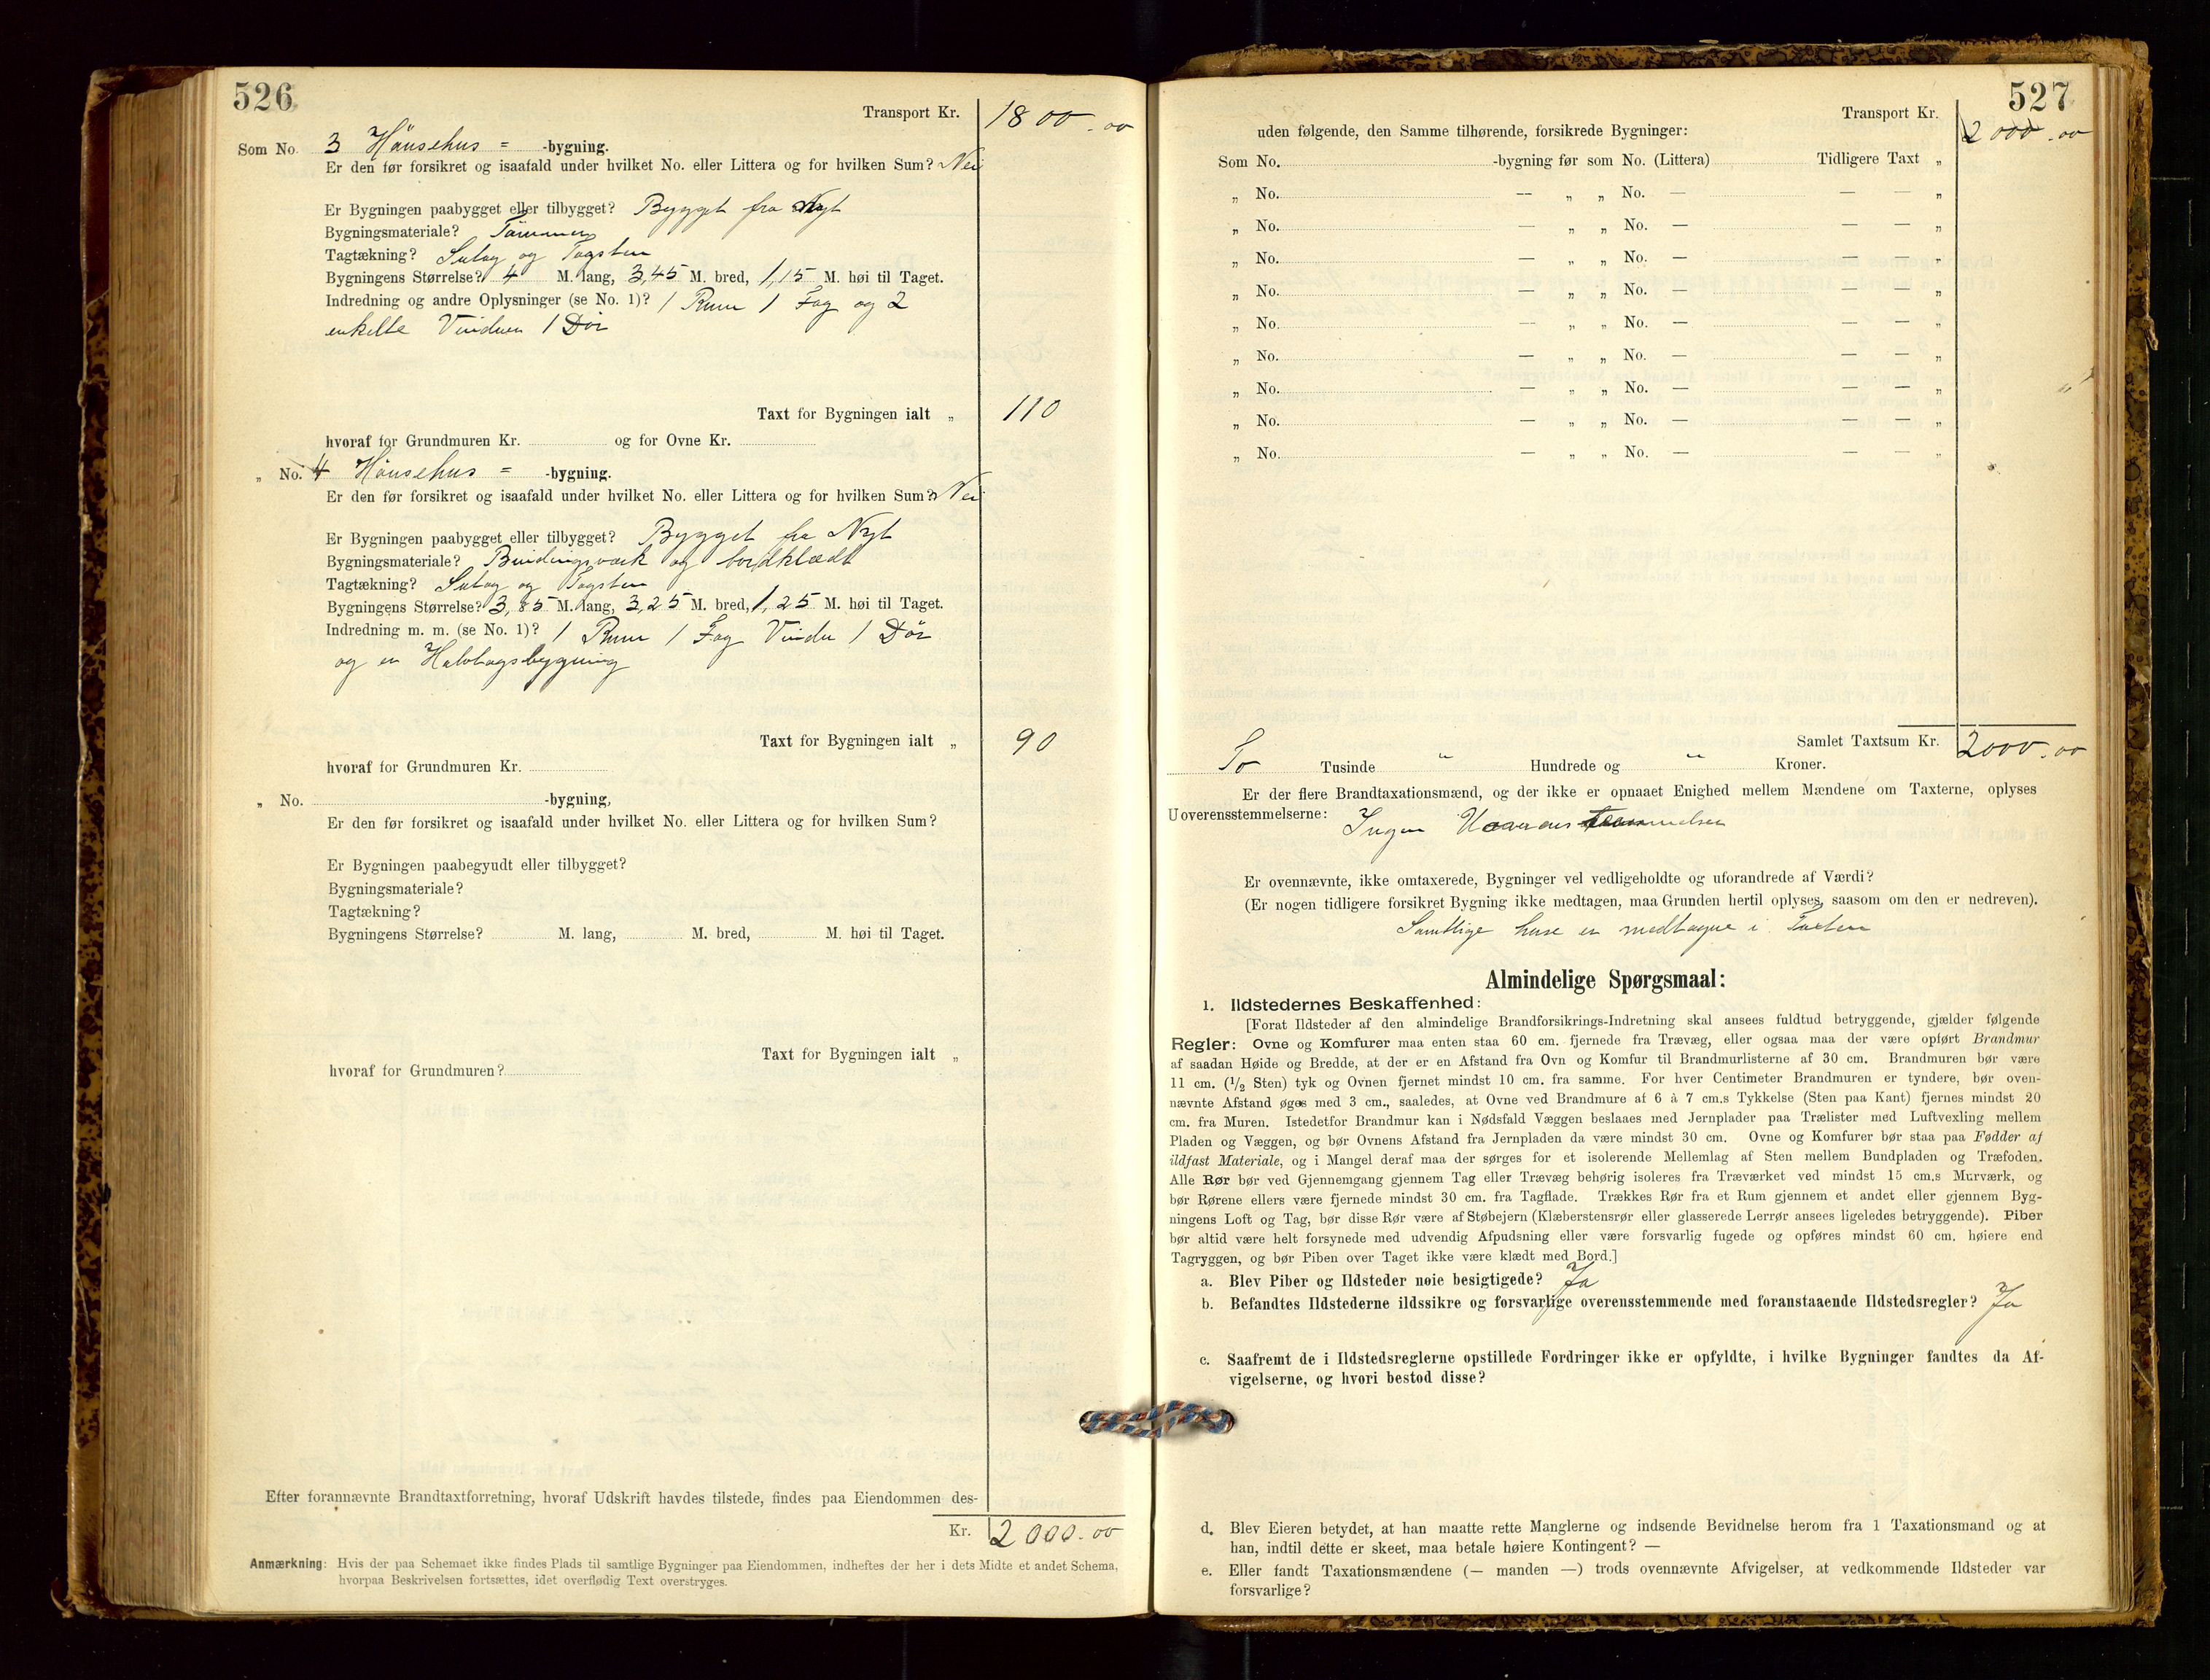 526
Transport Kr. 1800.00
Som No. 3 Hönsehus = -bygning.
Er den før forsikret og isaafald under hvilket No. eller Littera og for hvilken Sum? Nei
Er Bygningen paabygget eller tilbygget? Bygget fra Nyt
Bygningsmateriale? Tömmer
Tagtækning? Sutag og Tagsten
Bygningens Størrelse? 4 M. lang, 3,45 M. bred, 1,15 M. høi til Taget.
Indredning og andre Oplysninger (se No. 1)? 1 Rum 1 Fag og 2
enkelte Vinduer 1 Dör
Taxt for Bygningen ialt „ 110
hvoraf for Grundmuren Kr. og for Ovne Kr.
„ No. 4 Hönsehus = -bygning.
Er den før forsikret og isaafald under hvilket No. eller Littera og for hvilken Sum? Nei
Er Bygningen paabygget eller tilbygget? Bygget fra Nyt
Bygningsmateriale? Bindingsværk og bordklædt
Tagtækning? Sutag og Tagsten
Bygningens Størrelse? 3,85 M. lang, 3,25 M. bred, 1,25 M. høi til Taget.
Indredning m. m. (se No. 1)? 1 Rum 1 Fag Vindu 1 Dör
og er Halvtagsbygning
Taxt for Bygningen ialt „ 90
hvoraf for Grundmuren Kr.
„ No. -bygning,
Er den før forsikret og isaafald under hvilket No. eller Littera og for hvilken Sum?
Er Bygningen paabegyudt eller tilbygget?
Bygningsmateriale?
Tagtækning?
Bygningens Størrelse? M. lang, M. bred, M. høi til Taget.
Taxt for Bygningen ialt „
hvoraf for Grundmuren?
Efter forannævnte Brandtaxtforretning, hvoraf Udskrift havdes tilstede, findes paa Eiendommen des-
Kr. 2000.00
Anmærkning: Hvis der paa Schemaet ikke findes Plads til samtlige Bygninger paa Eiendommen, indheftes der her i dets Midte et andet Schema,
hvorpaa Beskrivelsen fortsættes, idet overflødig Text overstryges.
527
Transport Kr. 2000.00
uden følgende, den Samme tilhørende, forsikrede Bygninger:
Som No. -bygning før som No. (Littera) Tidligere Taxt „
„ No. — „ „ No. — — — „
„ No. — „ „ No. — — — „
„ No. — „ „ No. — — — „
„ No. — „ „ No. — — — „
„ No. — „ „ No. — — — „
„ No. — „ „ No. — — — „
„ No. — „ „ No. — — — „
„ No. — „ „ No. — — — „
„ No. — „ „ No. — — — „
Samlet Taxtsum Kr. 2000.00
To Tusinde " Hundrede og " Kroner.
Er der flere Brandtaxationsmænd, og der ikke er opnaaet Enighed mellem Mændene om Taxterne, oplyses
Uoverensstemmelserne: Ingen
Er ovennævnte, ikke omtaxerede, Bygninger vel vedligeholdte og uforandrede af Værdi?
(Er nogen tidligere forsikret Bygning ikke medtagen, maa Grunden hertil oplyses, saasom om den er nedreven).
Samtlige huse er medtagne i Taxten
Almindelige Spørgsmaal:
1. Ildstedernes Beskaffenhed:
[Forat Ildsteder af den almindelige Brandforsikrings-Indretning skal ansees fuldtud betryggende, gjælder følgende
Regler: Ovne og Komfurer maa enten staa 60 cm. fjernede fra Trævæg, eller ogsaa maa der være opført Brandmur
af saadan Høide og Bredde, at der er en Afstand fra Ovn og Komfur til Brandmurlisterne af 30 cm. Brandmuren bør være
11 cm. (1/2 Sten) tyk og Ovnen fjernet mindst 10 cm. fra samme. For hver Centimeter Brandmuren er tyndere, bør oven-
nævnte Afstand øges med 3 cm., saaledes, at Ovne ved Brandmure af 6 à 7 cm.s Tykkelse (Sten paa Kant) fjernes mindst 20
cm. fra Muren. Istedetfor Brandmur kan i Nødsfald Væggen beslaaes med Jernplader paa Trælister med Luftvexling mellem
Pladen og Væggen, og bør Ovnens Afstand fra Jernpladen da være mindst 30 cm. Ovne og Komfurer bør staa paa Fødder af
ildfast Materiale, og i Mangel deraf maa der sørges for et isolerende Mellemlag af Sten mellem Bundpladen og Træfoden.
Alle Rør bør ved Gjennemgang gjennem Tag eller Trævæg behørig isoleres fra Træværket ved mindst 15 cm.s Murværk, og
bør Rørene ellers være fjernede mindst 30 cm. fra Tagflade. Trækkes Rør fra et Rum gjennem et andet eller gjennem Byg-
ningens Loft og Tag, bør disse Rør være af Støbejern (Klæberstensrør eller glasserede Lerrør ansees ligeledes betryggende). Piber
bør altid være helt forsynede med udvendig Afpudsning eller være forsvarlig fugede og opføres mindst 60 cm. høiere end
Tagryggen, og bør Piben over Taget ikke være klædt med Bord.]
a. Blev Piber og Ildsteder nøie besigtigede? Ja
b. Befandtes Ildstederne ildssikre og forsvarlige overensstemmende med foranstaaende Ildstedsregler? Ja
c. Saafremt de i Ildstedsreglerne opstillede Fordringer ikke er opfyldte, i hvilke Bygninger fandtes da Af-
vigelserne, og hvori bestod disse?
d. Blev Eieren betydet, at han maatte rette Manglerne og indsende Bevidnelse herom fra 1 Taxationsmand og at
han, indtil dette er skeet, maa betale høiere Kontingent? —
e. Eller fandt Taxationsmændene (— manden —) trods ovennævnte Afvigelser, at vedkommende Ildsteder var
forsvarlige?